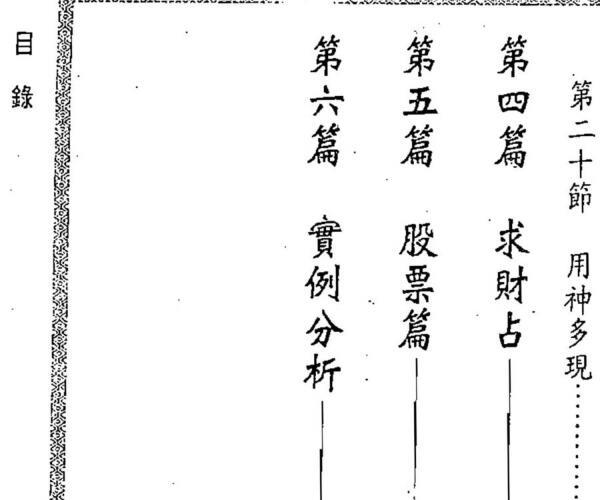 第二十節 用神多現…………
第四篇 求財占
第五篇 股票篇
第六篇 實例分析
目錄